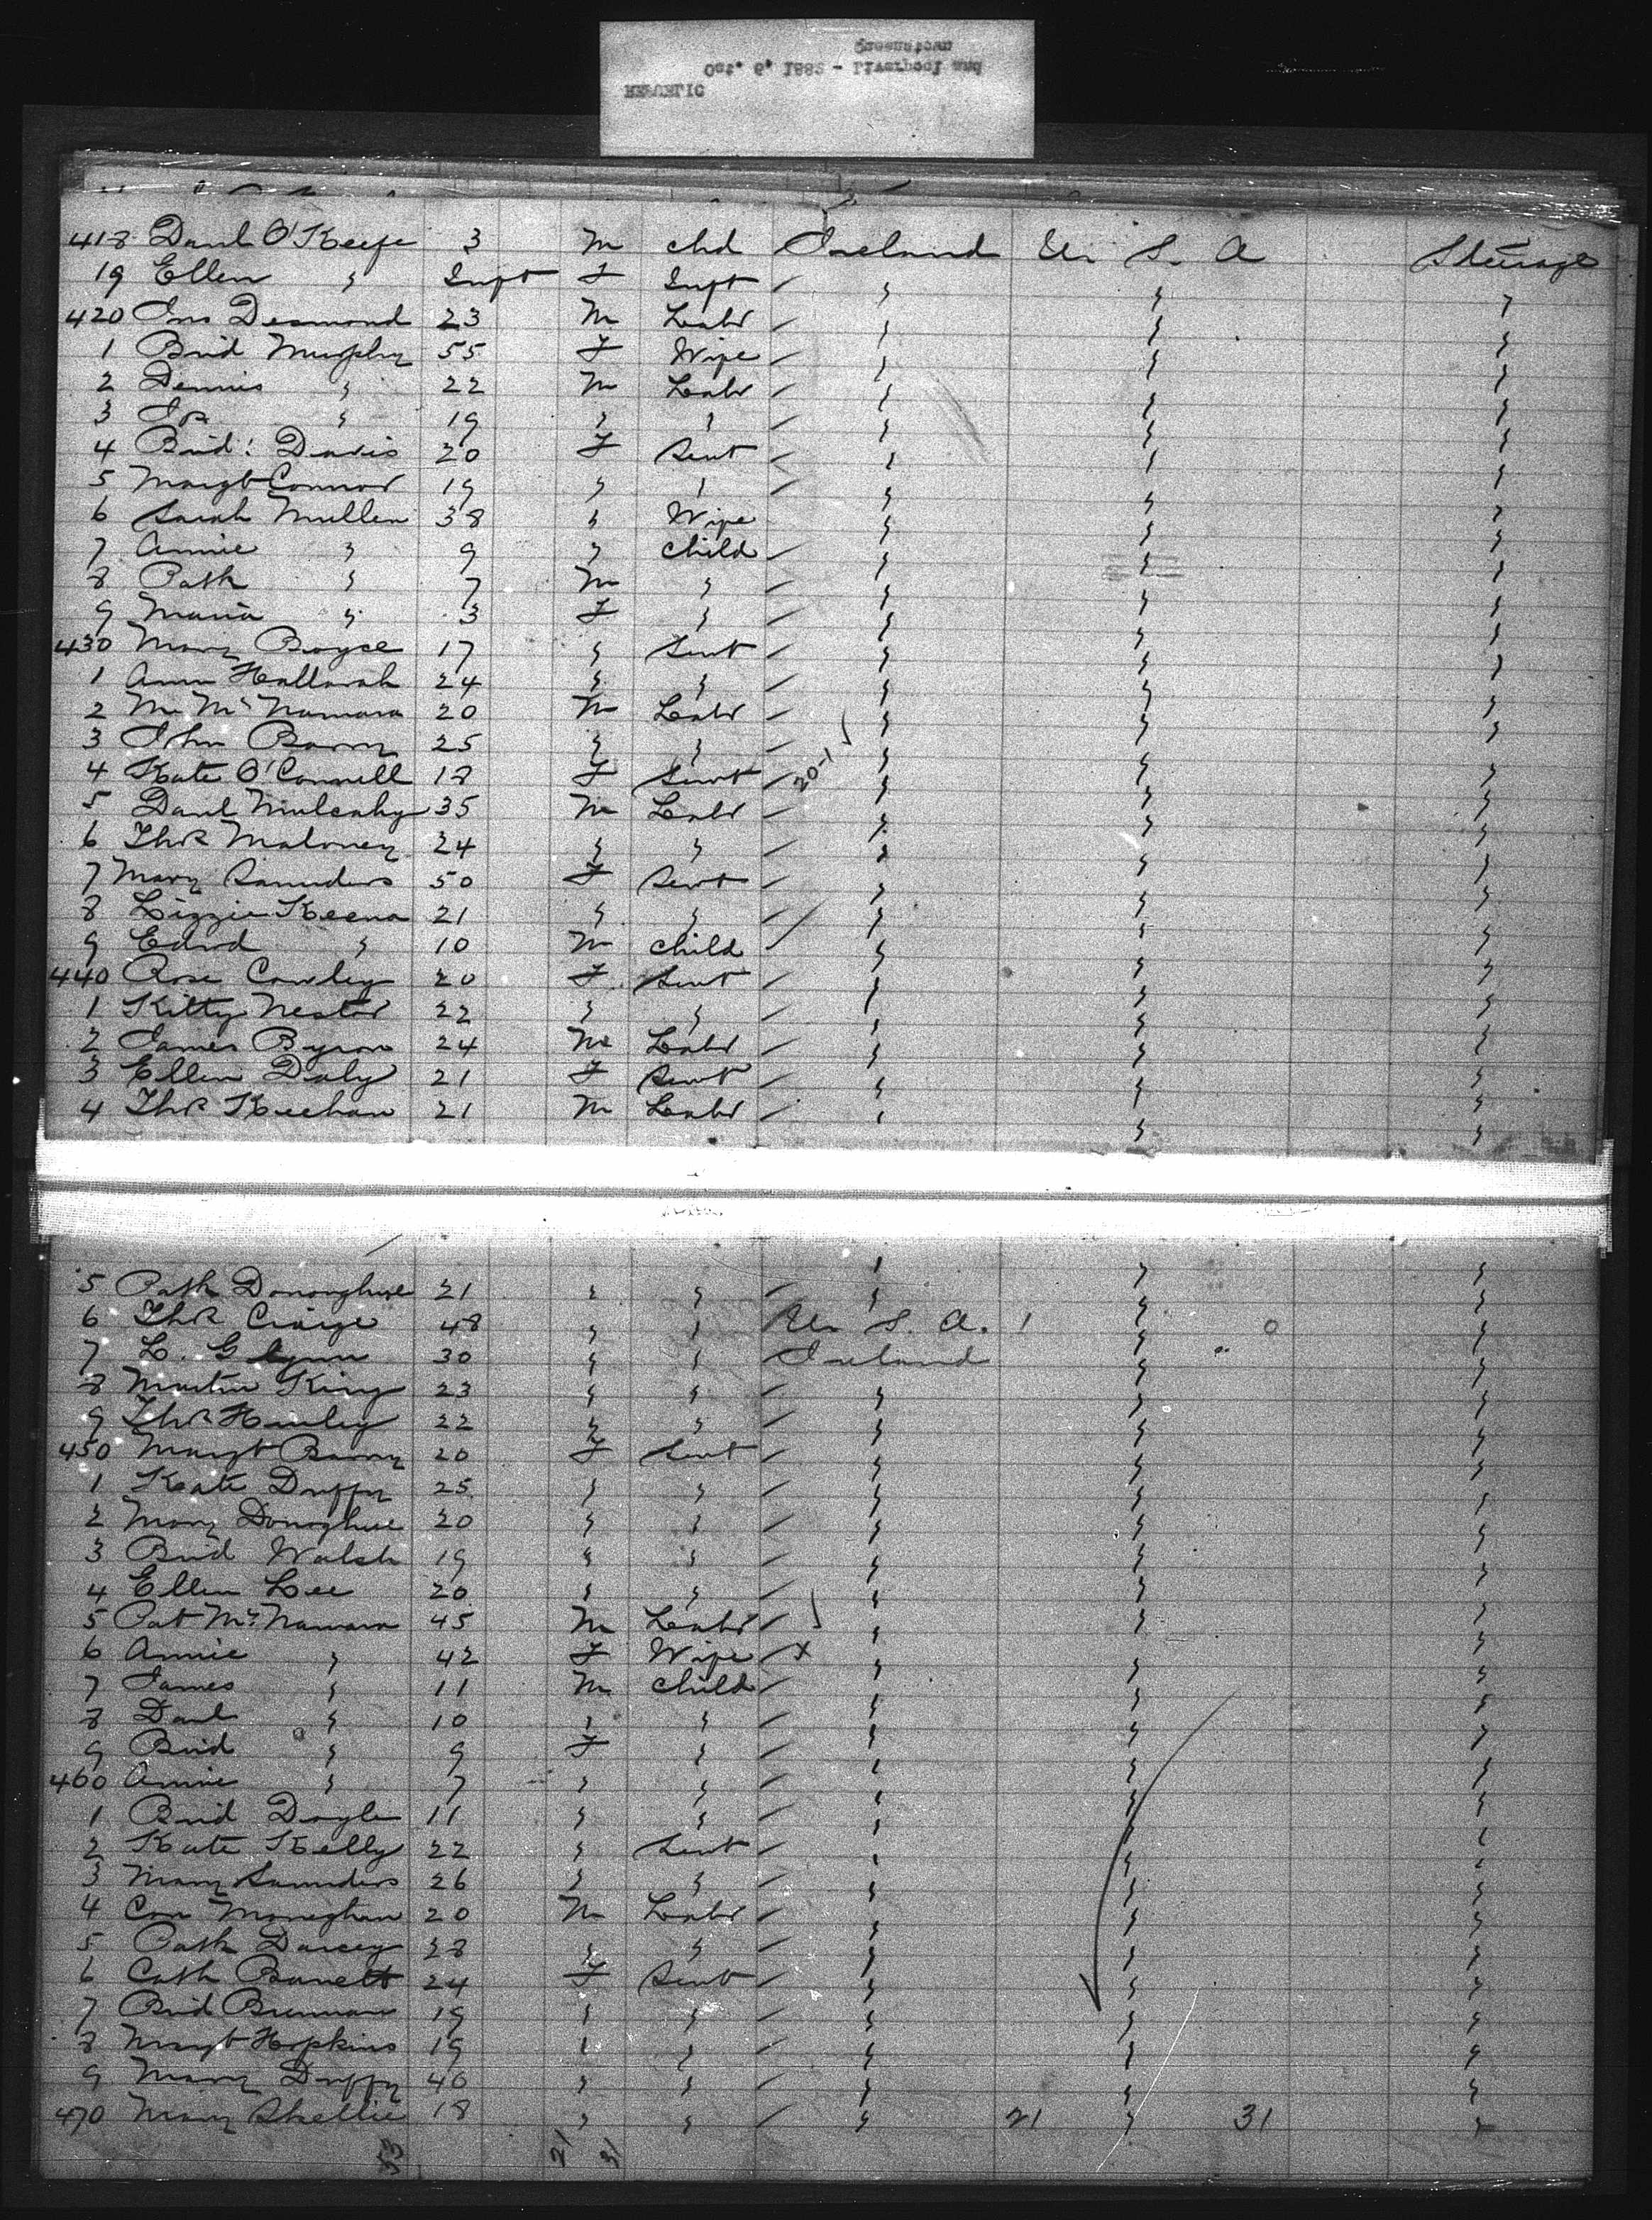 REPUBLIC
Oct. 6, 1883 - Liverpool and
Queenstown
418 Danl O'Keefe 3 M chd Ireland U. S. A Steerage
19 Ellen " Inft F Inft / " " "
420 Jno Desmond 23 M Labr / " " "
1 Brid Murphy 55 F Wife / " " "
2 Dennis " 22 M Labr / " " "
3 " 19 " " / " " "
4 Brid: Davis 20 F Servt / " " "
5 Margt Connor 19 " " / " " "
6 Sarah Mullen 38 " Wife " " "
7 Annie " 9 " Child / " " "
8 Patk " 7 M " / " " "
9 Maria " 3 F " / " " "
430 Mary Boyce 17 " Servt / " " "
1 Ann Hallorah 24 " " / " " "
2 M McNamara 20 M Labr / " " "
3 John Barry 25 " " / " " "
4 Kate O'Connell 18 F Servt / 20-1 " " "
5 Danl Mulcahy 35 M Labr " " "
6 Thos Maloney 24 " " / " " "
7 Mary Saunders 50 F Servt / " " "
8 Lizzie Keena 21 " " / " " "
9 Edwd " 10 M child / " " "
440 Rose Cowley 20 F Servt / " " "
1 Kitty Nestor 22 " " / " " "
2 James Byron 24 M Labr / " " "
3 Ellen Daly 21 F Servt " " "
4 Thos Keehan 21 M Labr / " " "
5 Patk Donoughue 21 " " / " " "
6 Thos 48 " " U. S. A. " "
7 L. Glynn 30 " " Ireland " "
8 Martin King 23 " " " " "
9 Thos Hurley 22 " " / " " "
450 Margt Barry 20 F Servt / " " "
1 Kate Duffy 25 " " / " " "
2 Mary Donoghue 20 " " / " " "
3 Brid Walsh 19 " " / " " "
4 Ellen Lee 20 " " / " " "
5 Pat McNamara 45 M Labr / " " "
6 Annie " 42 F Wife X " " "
7 James " 11 M child / " " "
8 Danl " 10 " " / " " "
9 Brid " 9 F " / " " "
460 Annie " 7 " " / " " "
1 Brid Doyle 11 " " / " " "
2 Kate Kelly 22 " Servt / " " "
3 Mary Saunders 26 " " / " " "
4 Con Moneghan 20 M Labr / " " "
5 Patk Darcey " " / " " "
6 Cath 24 F Servt / " " "
7 Brid Brennan 19 " " / " " "
8 Margt Hopkins 19 " " / " " "
9 Mary Duffy 40 " " / " " "
470 Mary Skellie 18 " " / " 21 " 31 "
21 31